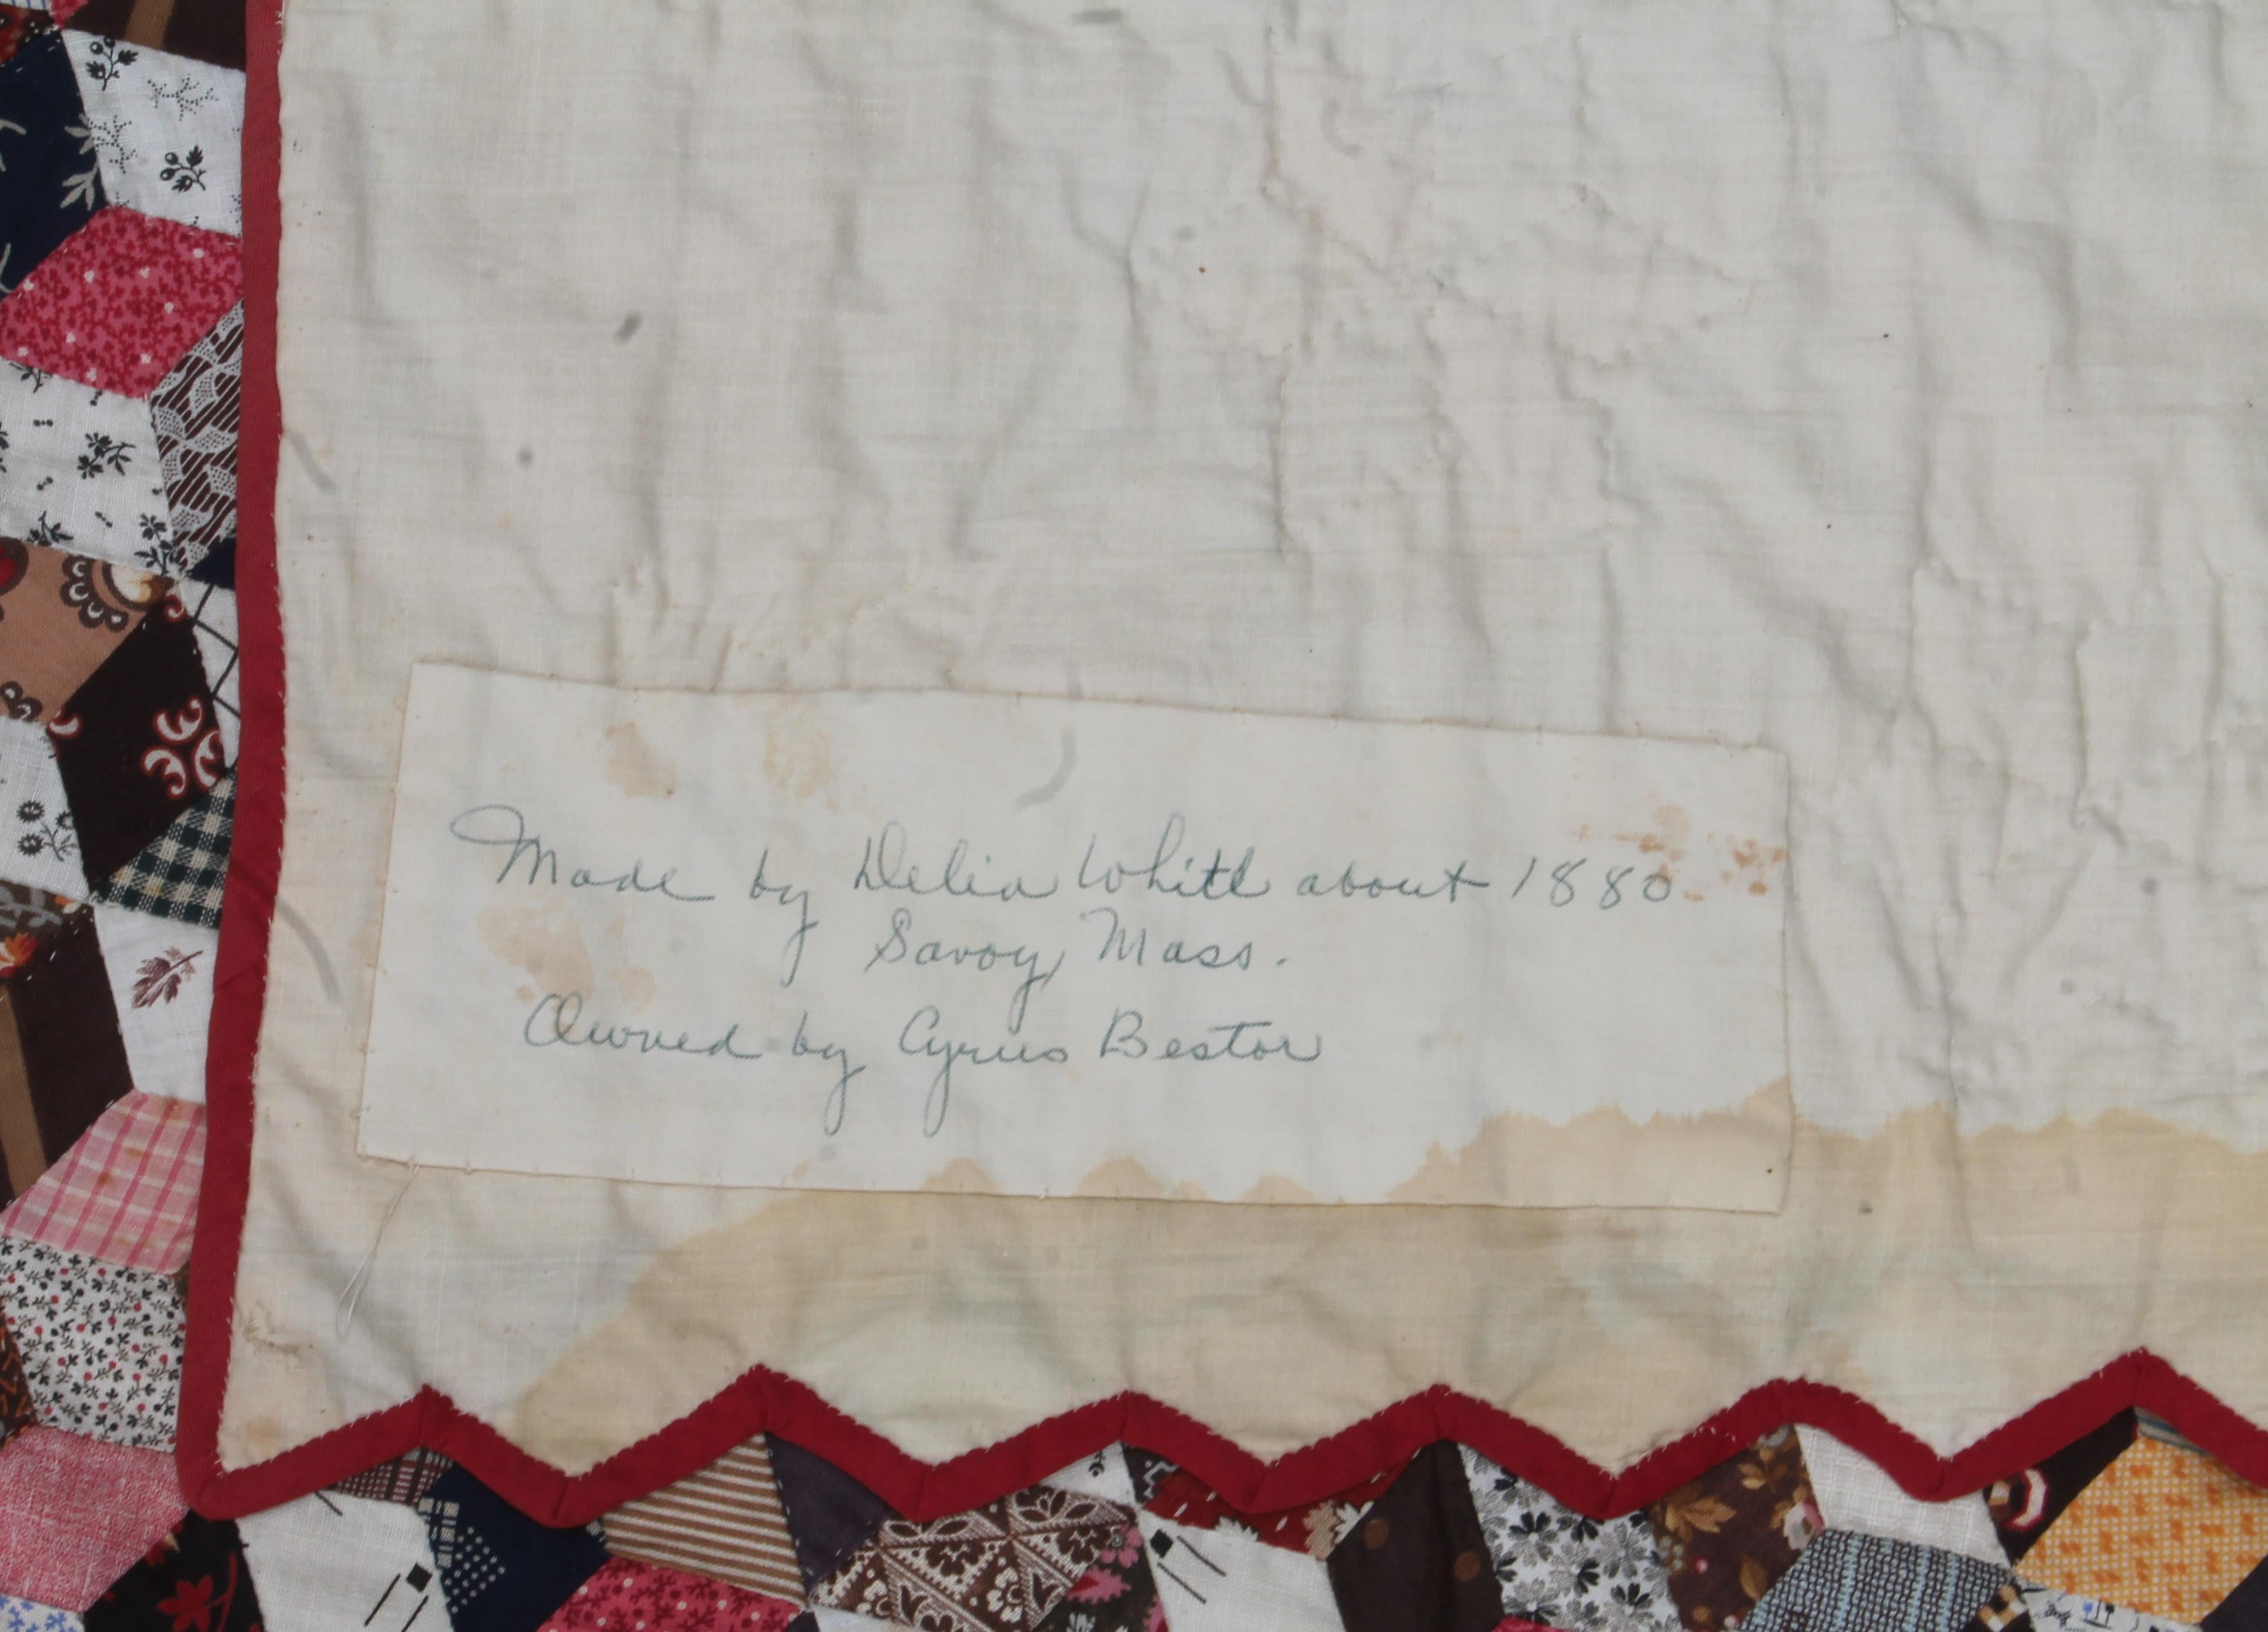 Made by Delia White about 1880
Savoy, Mass.
Owned by Cyrus Bestor